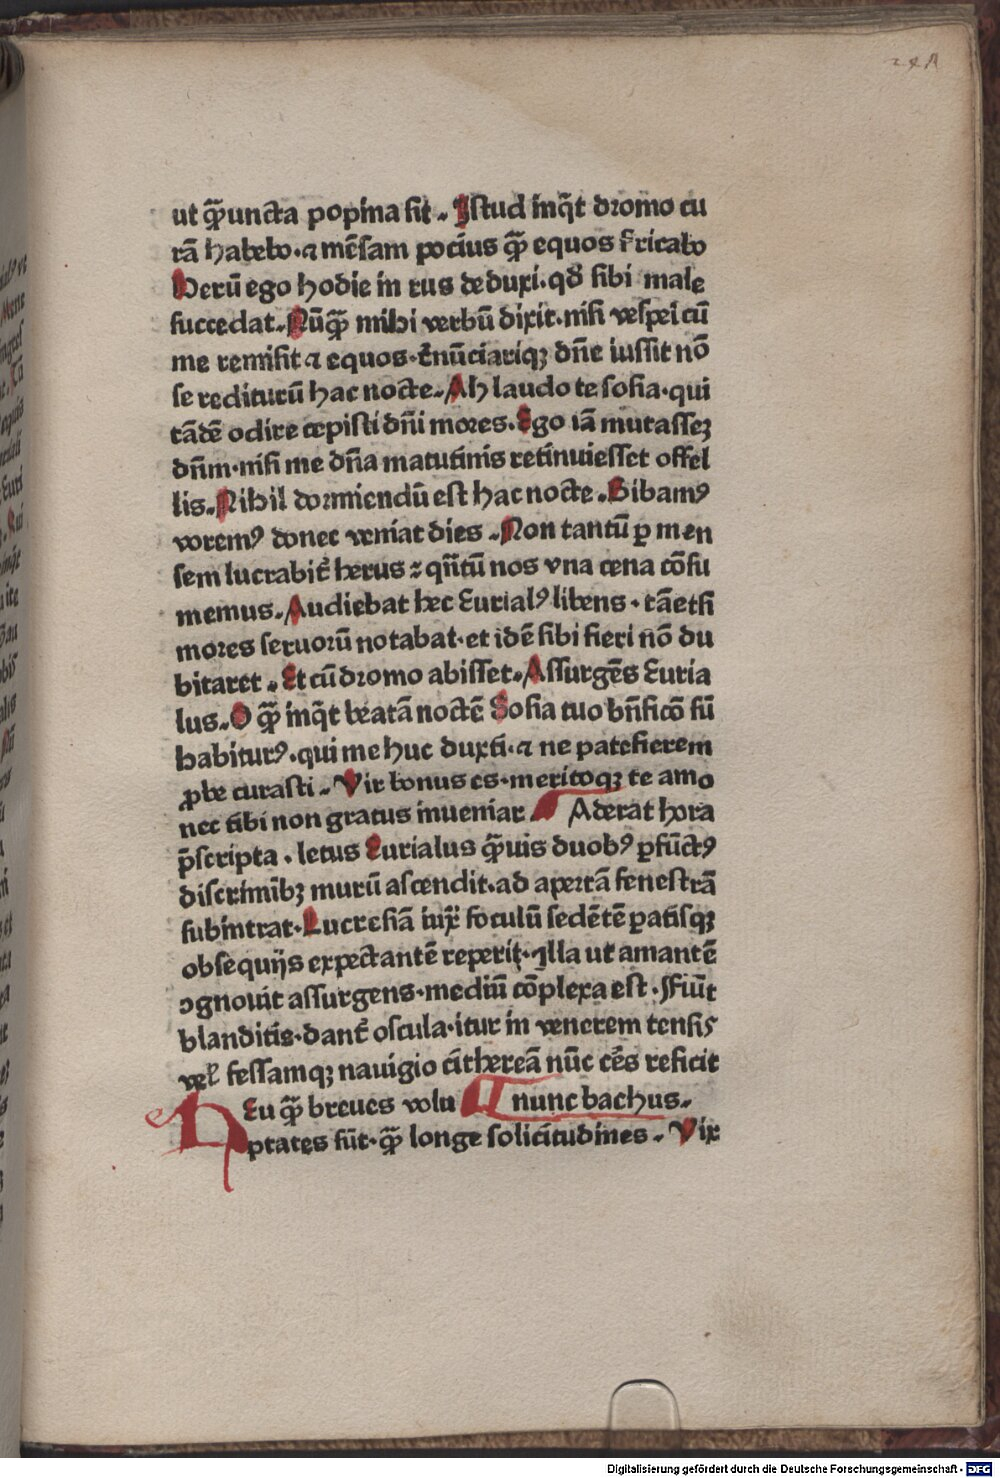 ut qͣ̄uncta popina sit. Istud inq̄t dromo cu
rā habebo.⁊ mēsam pocius qͣ̄ equos fricabo
Verū ego hodie in rus deduxi.qđ sibi male
succedat. Nūqͣ̄ mihi verbū dixit.nisi vesperi cū
me remisit ⁊ equos.Enūciariqꝫ dn̄e iussit nō
se rediturū hac nocte. Ah laudo te sosia.qui
tādē odire cepisti dn̄i mores. Ego iā mutasseꝫ
dn̄m.nisi me dn̄a matutinis retinuiesset offel
lis. Nihil dormiendū est hac nocte. Bibamꝰ
voremꝰ donec veniat dies. Non tantū ꝑ men
sem lucrabit̄ herus ꝛ qn̄tū nos vna cena cōsu
memus. Audiebat hec Eurialꝰ libens. tāetsi
mores seruorū notabat.et idē sibi fieri nō du
bitaret. Et cū dromo abisset. Assurgēs Euria
lus. O qͣ̄ inq̄t beatā noctē Sosia tuo bn̄ficō sū
habiturꝰ.qui me huc duxti.⁊ ne patefierem
ꝓbe curasti. Vir bonus es.meritoqꝫ te amo
nec tibi non gratus inueniar. Aderat hora
p̄scripta. letus Eurialus qͣ̄uis duobꝰ ꝑfūctꝰ
discrimībꝫ murū ascendit.ad apertā fenestrā
subintrat. Lucresiā iuxͣ foculū sedētē ꝑatisqꝫ
obsequijs expectantē reperit. Illa ut amantē
ꝯgnouit assurgens.mediū cōplexa est. Fiūt
blanditis.dant̄ oscula.itur in venerem tensis
vel fessamqꝫ nauigio cithereā nūc cēs reficit
Eu qͣ̄ breues volu nunc bachus.
HEu
ptates sūt.qͣ̄ longe solicitudines. Vix
Digitalisierung gefördert durch die Deutsche Forschungsgemeinschaft - DFG